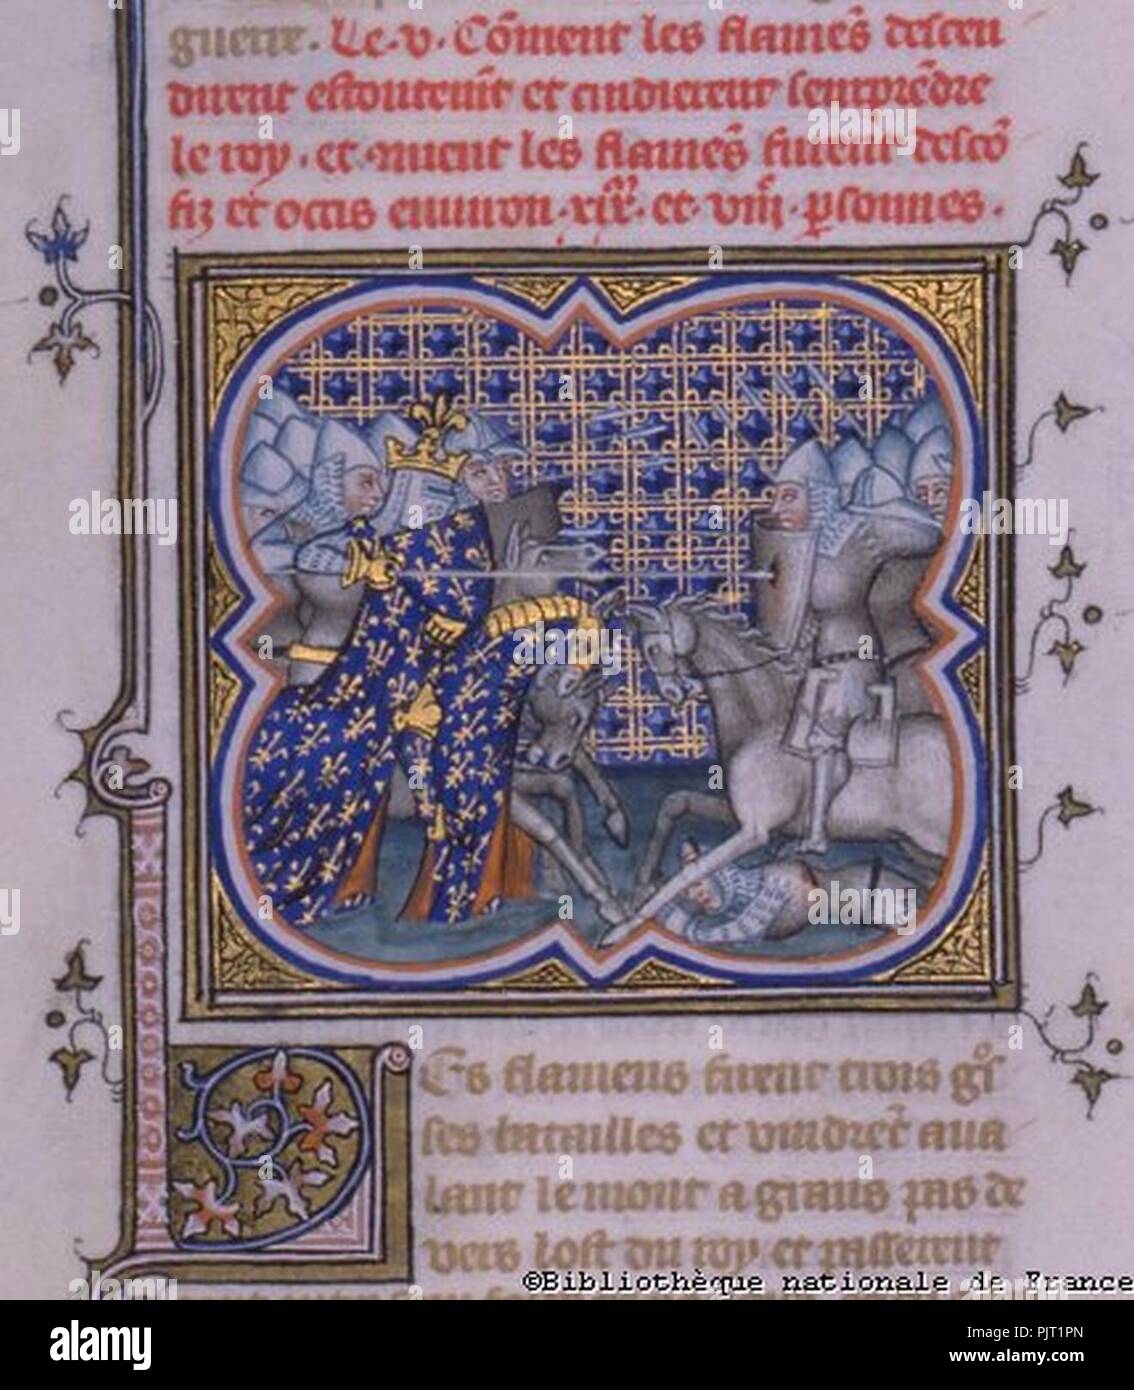 guerre. Le .v. Cõment les flamẽs descen
dirent estoutemẽt et cuidierent seurprẽdre
le roy . et cõment les flamẽs furent descõ
fiz et occis enuiron .xixm. et .viiic. psonnes.
Es flamens firent trois gros
ses batailles et vindrẽt aua
lant le mont a grans pas de
vers lost du roy et passerent
©Bibliothèque nationale de France
alamy
Image ID: PJT1PN
www.alamy.com